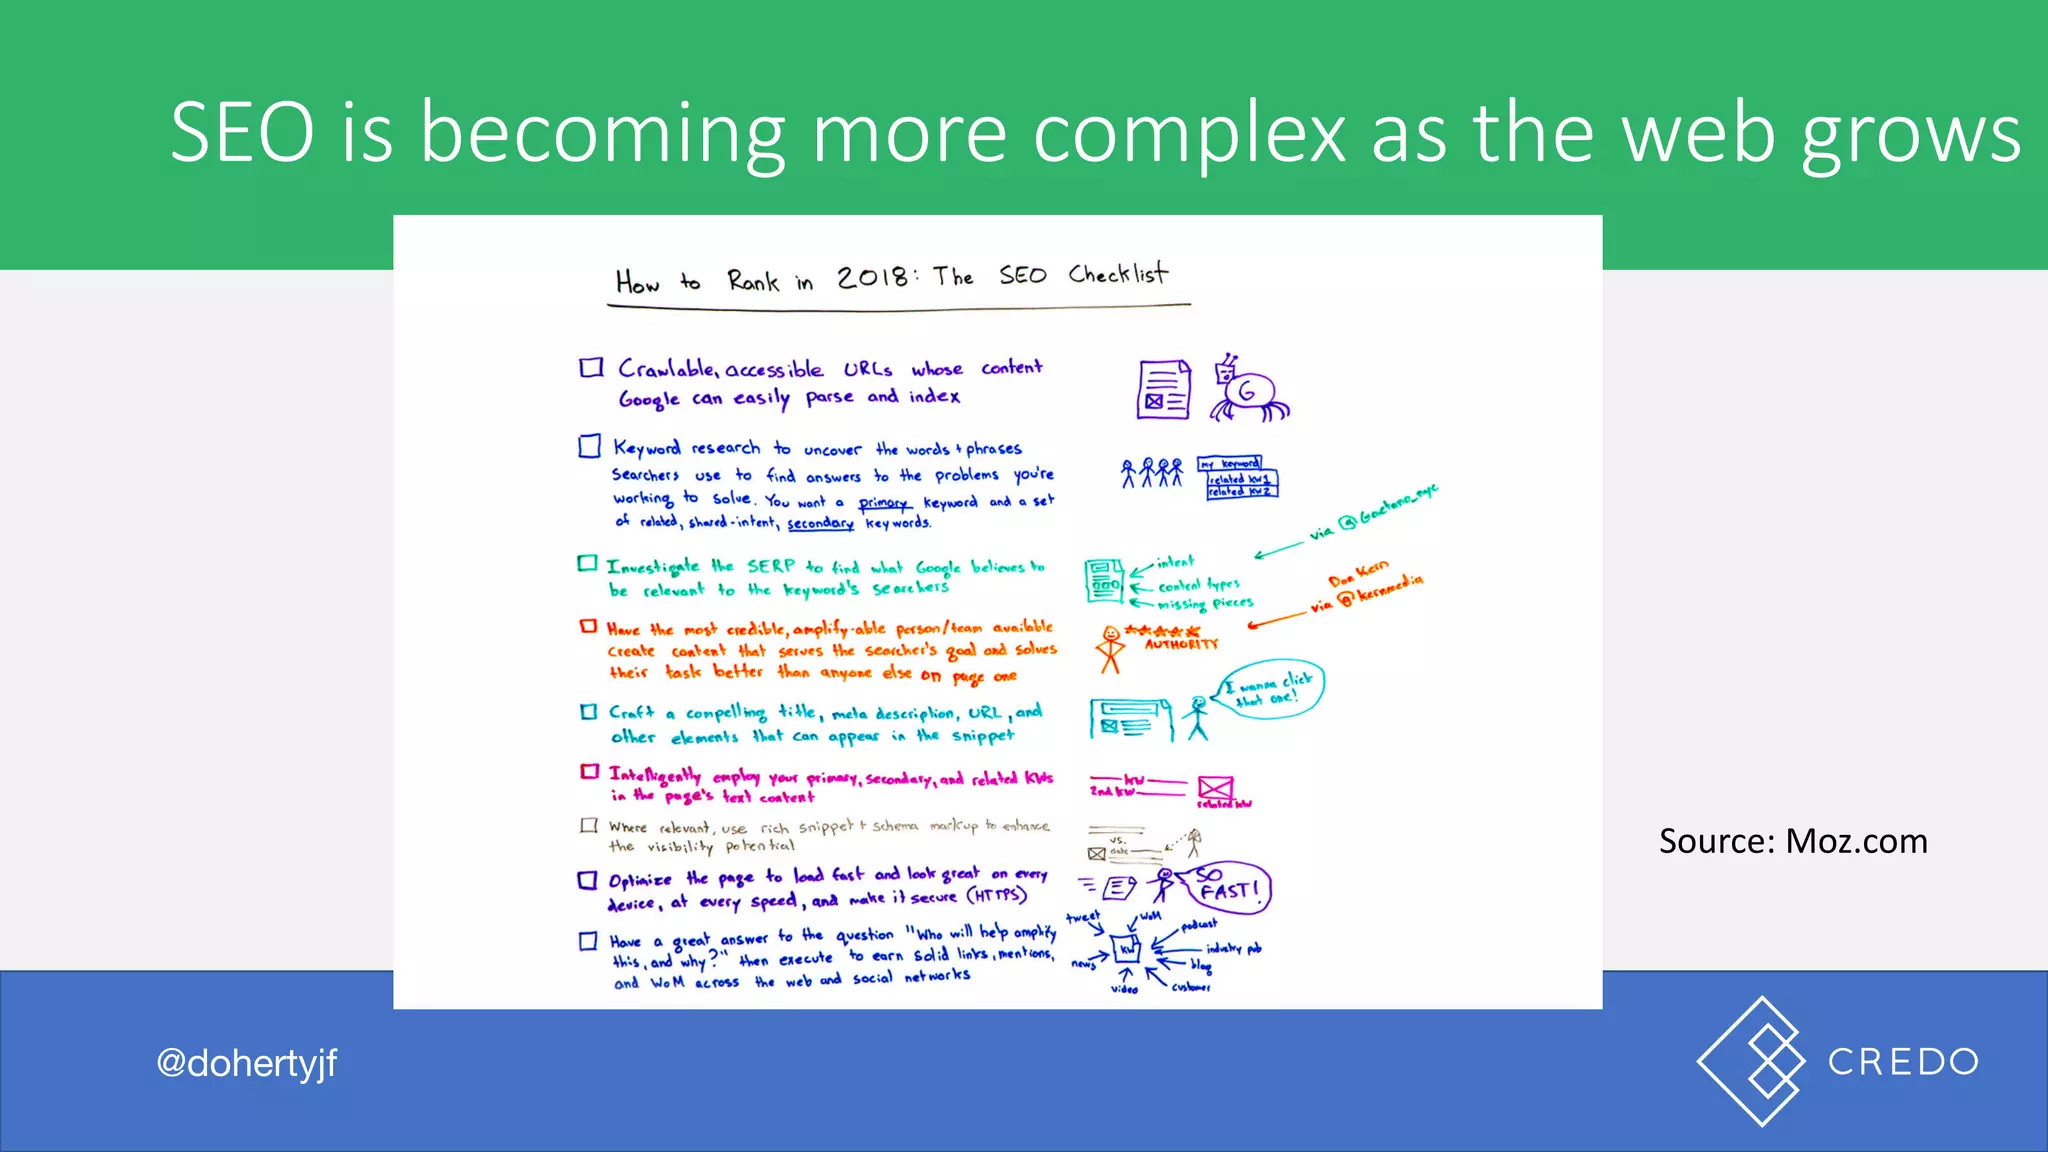 SEO is becoming more complex as the web grows
How to Rank in 2018: The SEO Checklist
Crawlable, accessible URLs whose content
Google can easily parse and index
G
Keyword research to uncover the words + phrases
searchers use to find answers to the problems you're
working to solve. You want a primary keyword and a set
of related, shared-intent, secondary keywords.
my keyword
related kw1
related kw2
Investigate the SERP to find what Google believes to
be relevant to the keyword's searchers
intent
content types
missing pieces
via @Gaetano_nyc
Have the most credible, amplify-able person/team available
create content that serves the searcher's goal and solves
their task better than anyone else on page one
AUTHORITY
Dan Kern
via @kernmedia
Craft a compelling title, meta description, URL, and
other elements that can appear in the snippet
I wanna click
that one!
Intelligently employ your primary, secondary, and related KWs
in the page's text content
KW
2nd KW
related kw
Where relevant, use rich snippet + schema markup to enhance
the visibility potential
vs.
date
Optimize the page to load fast and look great on every
device, at every speed, and make it secure (HTTPS)
SO
FAST!
Have a great answer to the question "Who will help amplify
this, and why?" then execute to earn solid links, mentions,
and WoM across the web and social networks
tweet
WoM
podcast
industry pub
blog
customer
video
news
KW
Source: Moz.com
@dohertyjf
CREDO